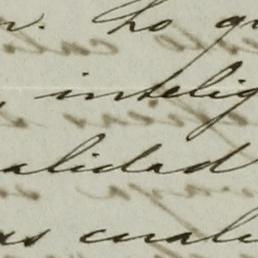 . Lo qu
intelig
alidad
as cuali